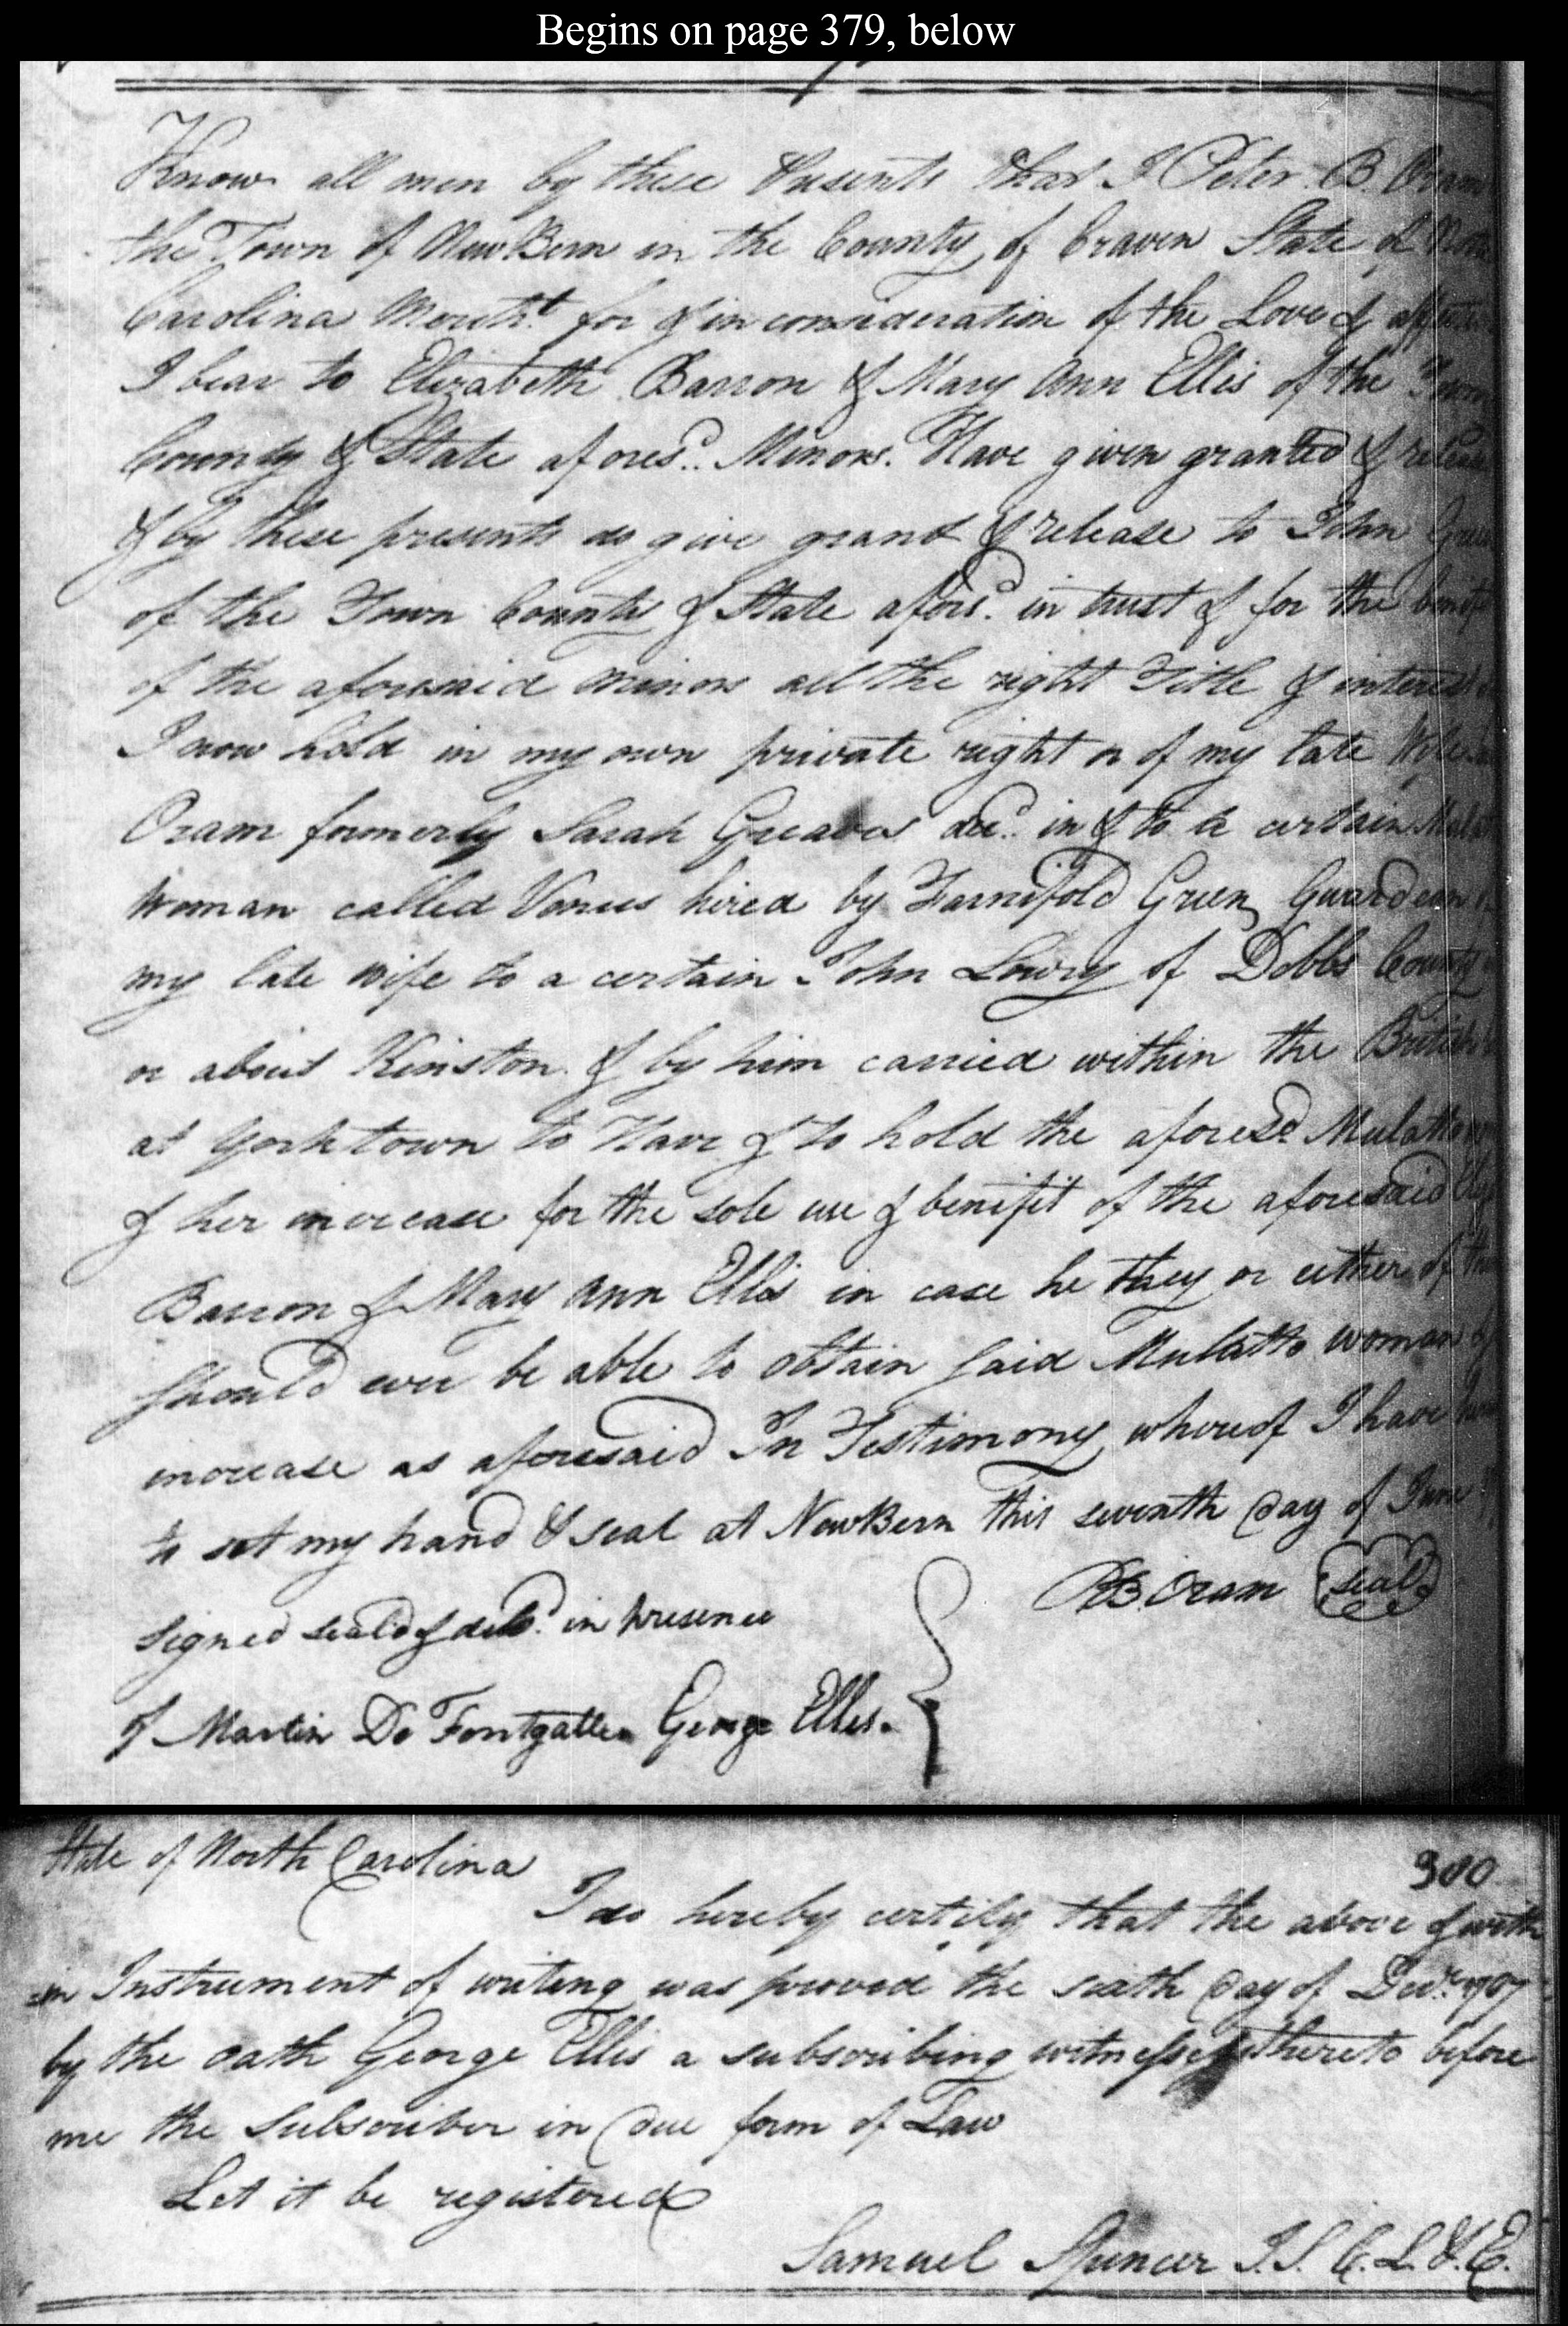 Begins on page 379, below
Know all men by these Presents that I Peter B. Oram
the Town of NewBern in the County of Craven State of
Carolina Mercht. for & in consideration of the Love &
I bear to Elizabeth Barron & Mary Ann Ellis of the Town
County & State afores.d Minors. Have given granted &
& by these presents do give grant & release to John
of the Town County & State afors.d in trust & for the
of the aforesaid minors all the right Title & interest
I now hold in my own private right or of my late Wife
Oram formerly Sarah Greaves dec.d in & to a certain
Woman called Venus hired by Farnifold Green Guardean
my late wife to a certain John Lowry of Dobbs County
or about Kinston & by him carried within the British
at Yorktown to Have & to hold the aforesd. Mulatto
& her increase for the sole use & benifit of the aforesaid
Barron & Mary Ann Ellis in case he they or either of
should ever be able to obtain said Mulatto woman &
increase as aforesaid In Testimony whereof I have
to set my hand & seal at NewBern this seventh day of June
PB. Oram seal
signed seald & deld. in presence
of Martin De Fontgatte George Ellis.
State of North Carolina
380
I do hereby certify that the above & with
in Instrument of writing was proved the sixth day of Decr.
by the oath George Ellis a subscribing thereto before
me the Subscriber in due form of Law
Let it be registered
Samuel Spencer J.S.C.L.&E.